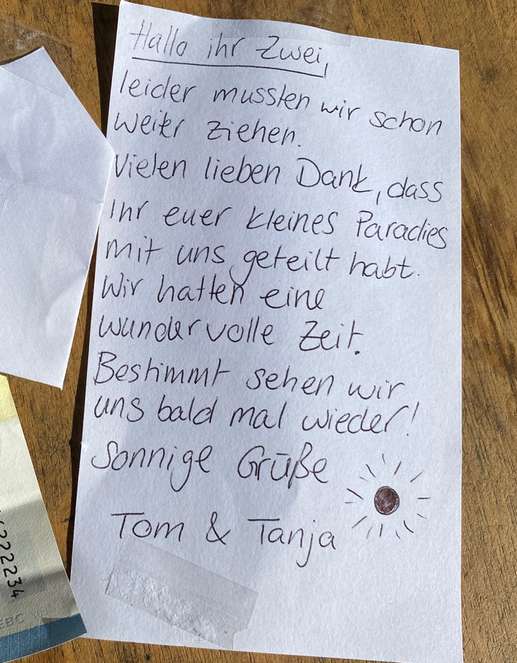 Hallo ihr Zwei,
leider mussten wir schon
weiter ziehen.
Vielen lieben Dank, dass
Ihr euer kleines Paradies
mit uns geteilt habt.
Wir hatten eine
wundervolle Zeit.
Bestimmt sehen wir
uns bald mal wieder!
Sonnige Grüße
Tom & Tanja
222234